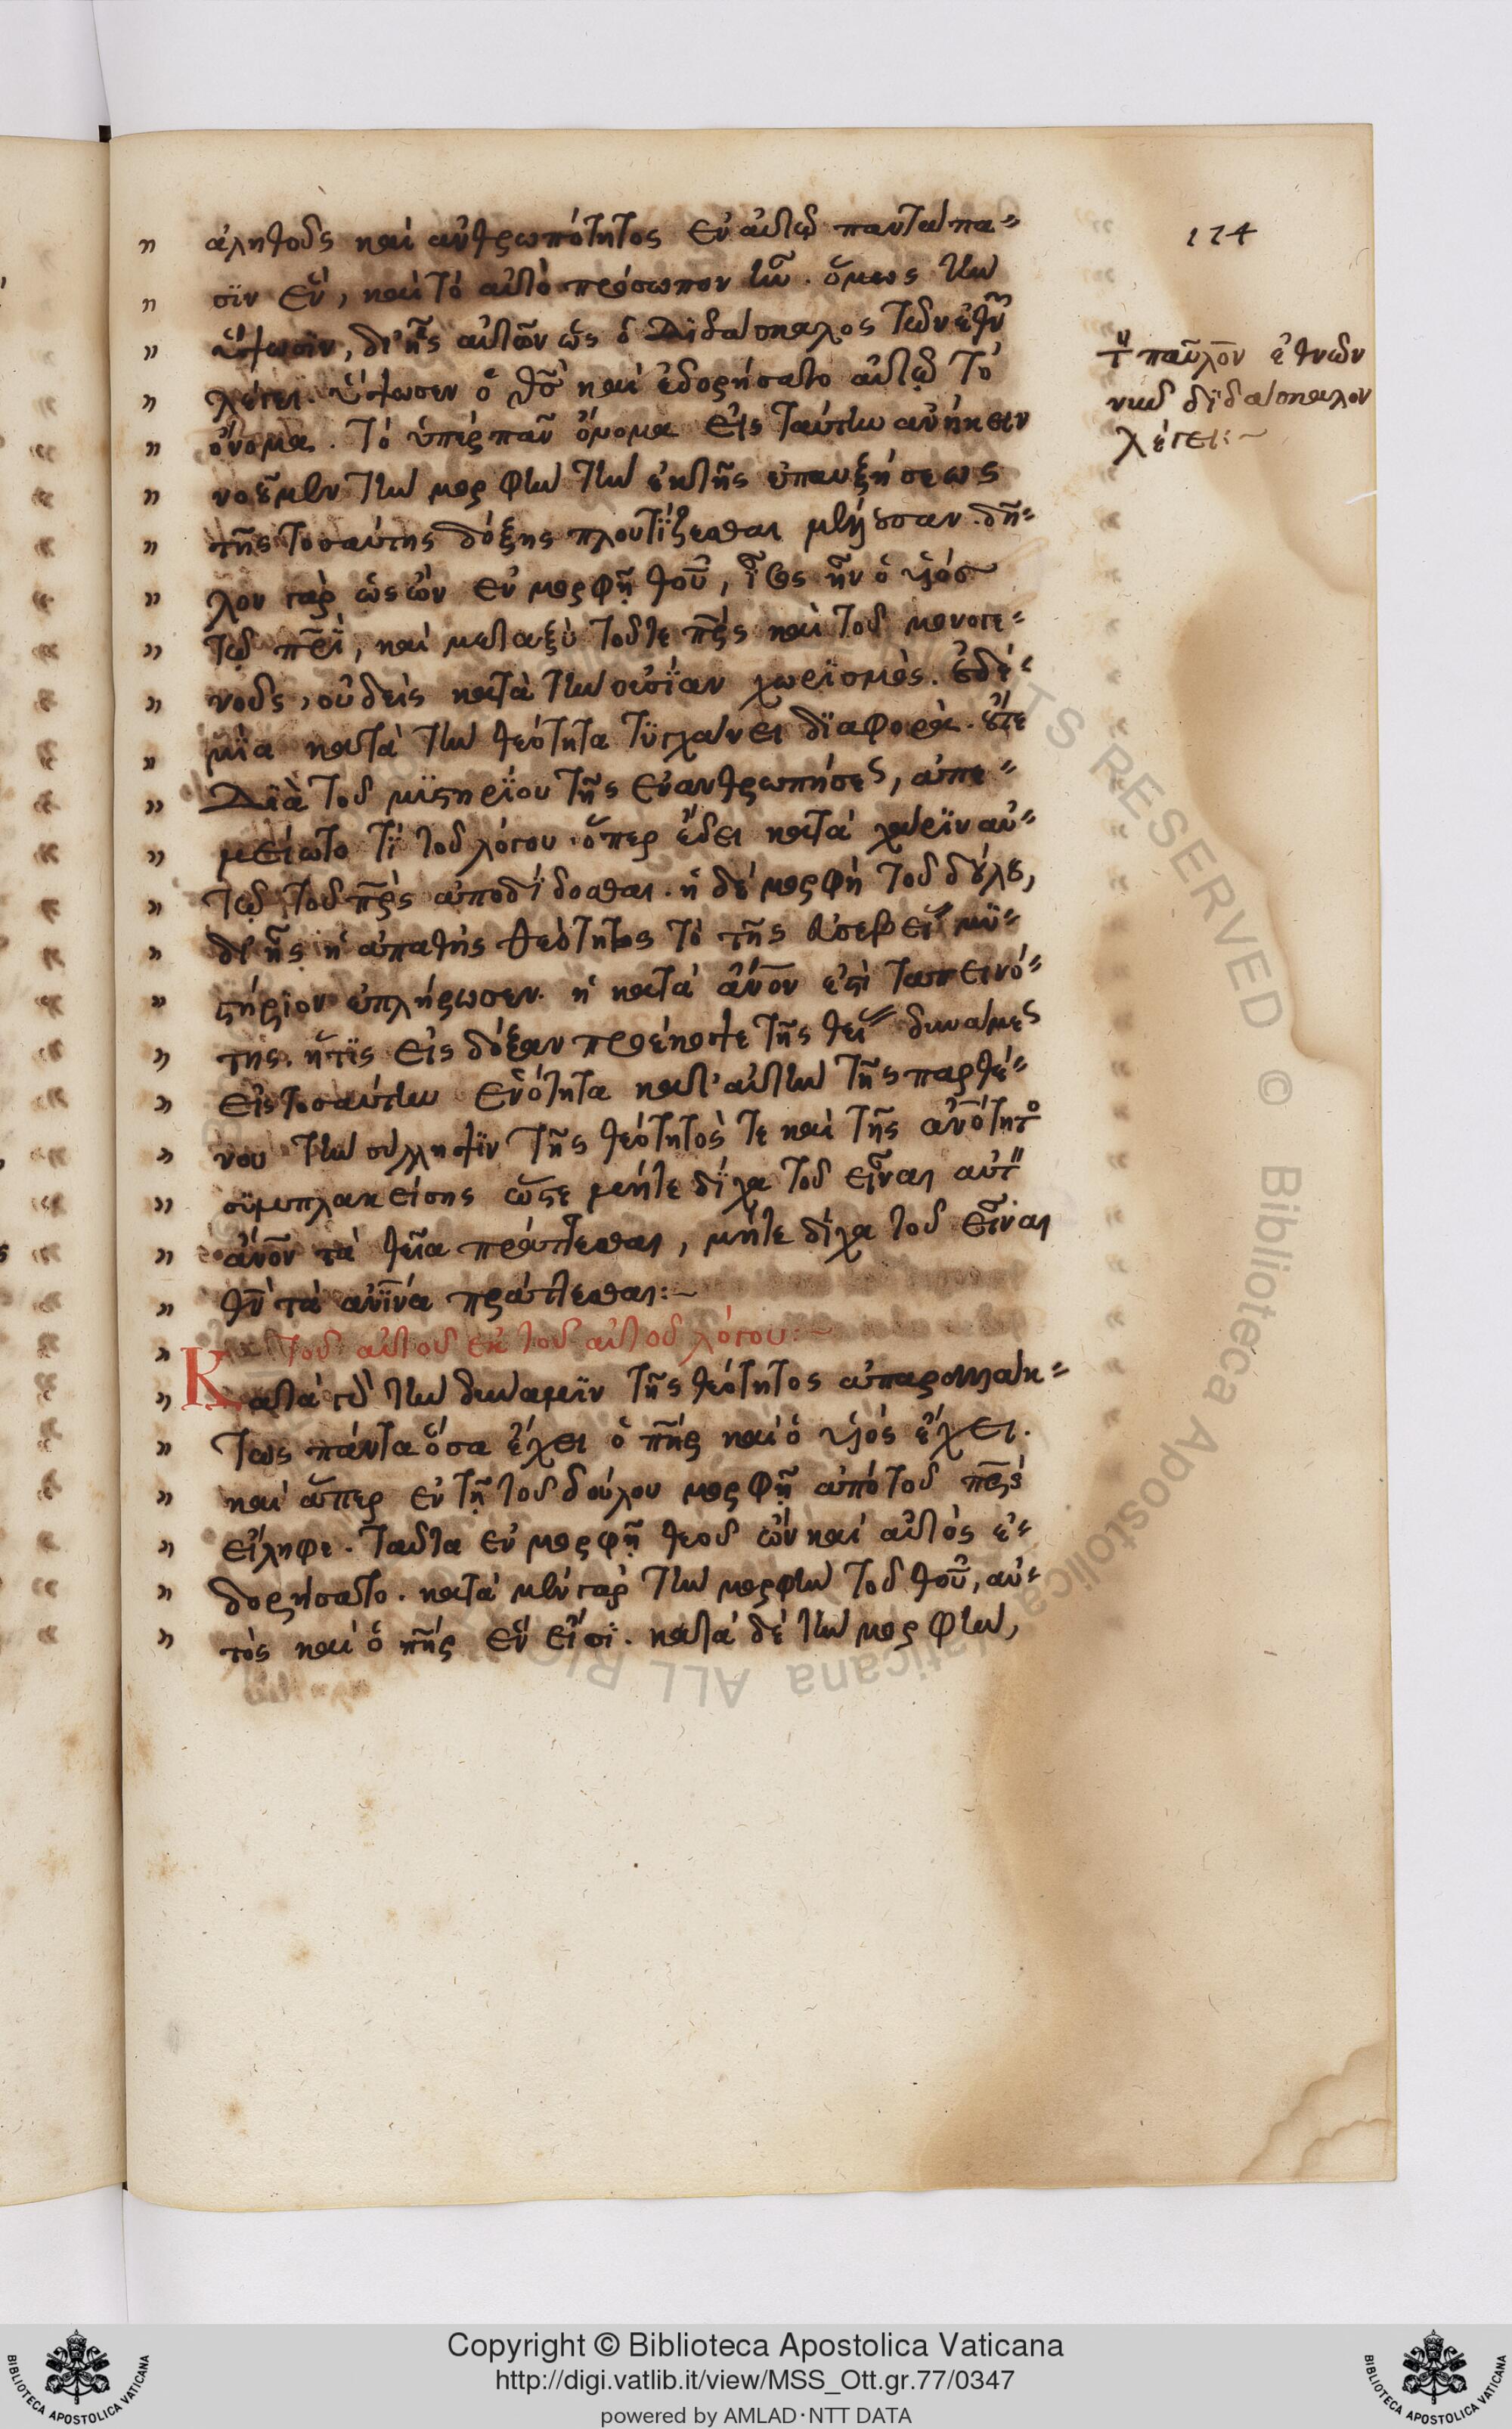 174
ἀληθοῦς καὶ ἀνθρωπότητος ἐν αὐτῷ παντάπα-
σϊν ἓν, καὶ τὸ αὐτὸ πρόσωπον ἦν. ὅμως τὴν
ὕψωσϊν, δι' ἧς αὐτὸν ὡς ὁ διδάσκαλος τῶν ἐθνῶν
λέγει. ὕψωσεν ὁ θς καὶ ἐδορήσατο αὐτῷ τὸ
ὄνομα. τὸ ὑπὲρ πᾶν ὄνομα εἰς ταύτην ἀνήκειν
νοοῦμεν τὴν μορφὴν τὴν ἐκ τῆς ἐπαυξήσεως
τῆς τοσαύτης δόξης πλουτΐζεσθαι μέλλουσαν. δῆ-
λον γὰρ ὡς ὢν ἐν μορφῇ θοῦ, ἶσος ἦν ὁ υἱὸς
τῷ πρΐ, καὶ μεταξὺ τοῦ τε πρς καὶ τοῦ μονογε-
νοῦς, οὐδεὶς κατὰ τὴν οὐσΐαν χωρϊσμὸς. οὐδε-
μία κατὰ τὴν θεότητα τϋγχάνει δϊαφορὰ. οὔτε
διὰ τοῦ μϋστηρΐου τῆς ἐνανθρωπήσεως, ἀπε-
μειώτο τΐ τοῦ λόγου. ὅπερ ἔδει κατὰ χάρϊν αὐ-
τῷ τοῦ πρς ἀποδΐδοσθαι. ἡ δὲ μορφὴ τοῦ δούλου,
δι' ἧς ἡ ἀπαθὴς θεότητος τὸ τῆς εὐσεβείας μϋ-
στήριον ἐπλήρωσεν. ἡ κατὰ ἄνον ἐστὶ ταπεινό-
της. ἥτϊς εἰς δόξαν προέκοψε τῆς θείας δυνάμεως
εἰς τοσαύτην ἑνότητα κατ' αὐτὴν τῆς παρθέ-
νου τὴν σύλληψϊν τῆς θεότητός τε καὶ τῆς ἀνότητος
σϋμπλακείσης ὥστε μήτε δΐχα τοῦ εἶναι αὐτὸν
ἄνον τὰ θεῖα πράττεσθαι, μήτε δΐχα τοῦ εἶναι
θν τὰ ἀνϊνα πράττεσθαι:~
Καὶ τοῦ αὐτοῦ ἐκ τοῦ αὐτοῦ λόγου:~
ατὰ γοῦν τὴν δυναμϊν τῆς θεότητος ἀπαραλλάκ-
τως πάντα ὅσα ἔχει ὁ πηρ καὶ ὁ υἱὸς ἔχει.
καὶ ἅπερ ἐν τῇ τοῦ δούλου μορφῇ ἀπὸ τοῦ πρς
εἴληφε. ταῦτα ἐν μορφῇ θεοῦ ὢν καὶ αὐτὸς ἐ-
δορήσατο. κατὰ μὲν γὰρ τὴν μορφὴν τοῦ θοῦ, αὐ-
τὸς καὶ ὁ πηρ ἕν εἰσϊ. κατὰ δὲ τὴν μορφὴν,
τὸν παῦλον ἐθνῶν
νῦν δϊδάσκαλον
λέγει:~
Copyright © Biblioteca Apostolica Vaticana
http://digi.vatlib.it/view/MSS_Ott.gr.77/0347
powered by AMLAD·NTT DATA